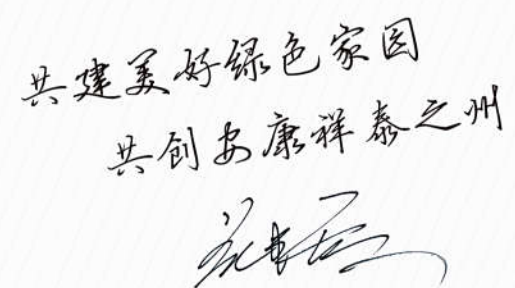 共建美好绿色家园
共创安康祥泰之州